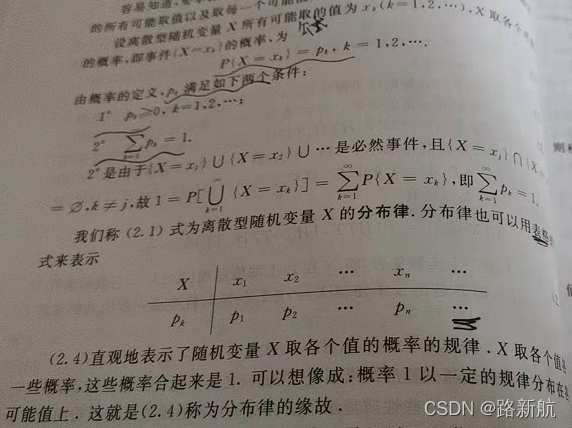 容易知道,要掌
的所有可能取值以及取每一个可能值
设离散型随机变量 X 所有可能取的值为 xₖ(k=1,2,…),X 取各个
的概率,即事件{X=xₖ}的概率,为
P{X=xₖ}=pₖ, k=1,2,….
由概率的定义,pₖ 满足如下两个条件:
1° pₖ≥0, k=1,2,…;
2° ∑_{k=1}^{∞} pₖ=1.
2°是由于{X=x₁}∪{X=x₂}∪…是必然事件,且{X=xⱼ}∩{X
=∅,k≠j,故 1=P[⋃_{k=1}^{∞}{X=xₖ}]=∑_{k=1}^{∞}P{X=xₖ},即∑_{k=1}^{∞}pₖ=1.
我们称 (2.1) 式为离散型随机变量 X 的分布律. 分布律也可以用表格
式来表示
X x₁ x₂ … xₙ …
pₖ p₁ p₂ … pₙ …
(2.4)直观地表示了随机变量 X 取各个值的概率的规律. X 取各个值各
一些概率,这些概率合起来是 1. 可以想像成:概率 1 以一定的规律分布在各
可能值上. 这就是(2.4)称为分布律的缘故.
CSDN @路新航